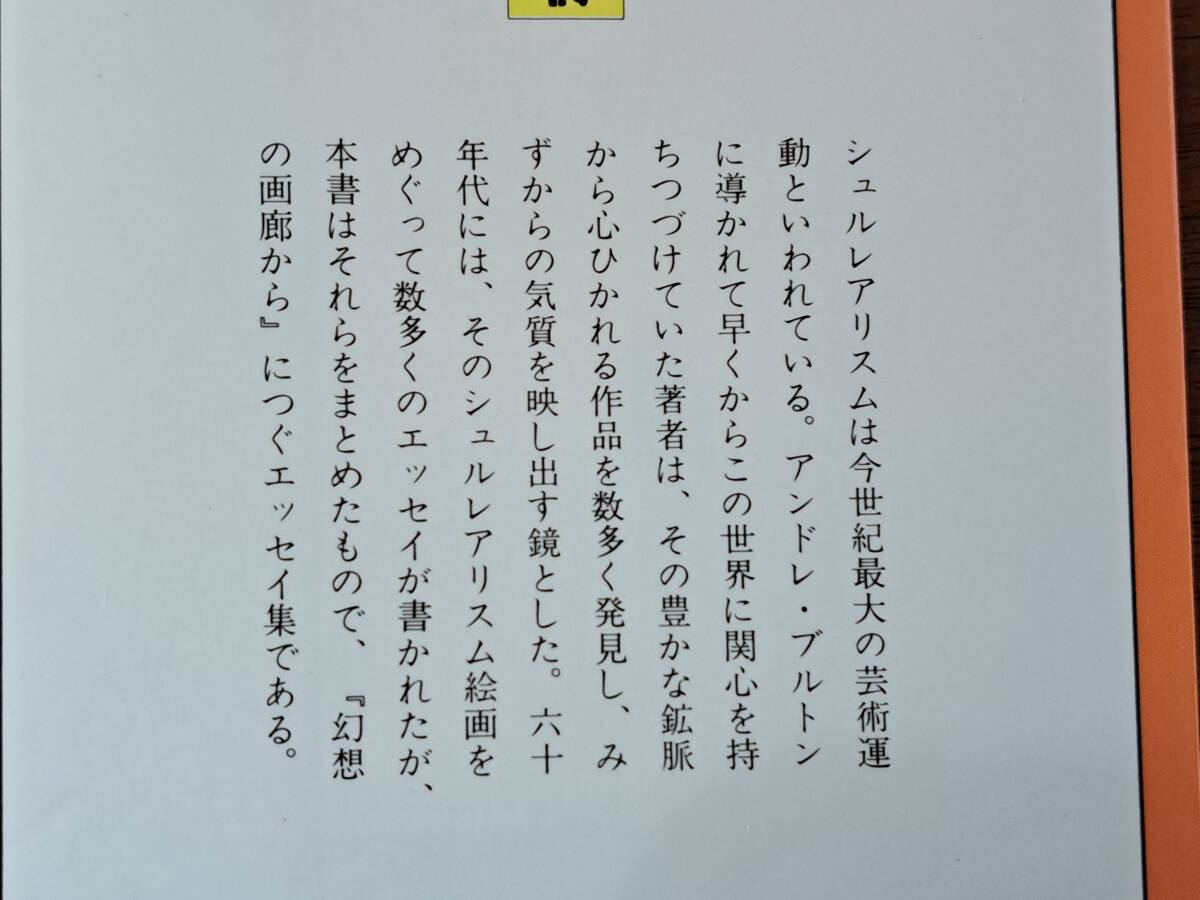 シュルレアリスムは今世紀最大の芸術運
動といわれている。アンドレ・ブルトン
に導かれて早くからこの世界に関心を持
ちつづけていた著者は、その豊かな鉱脈
から心ひかれる作品を数多く発見し、み
ずからの気質を映し出す鏡とした。六十
年代には、そのシュルレアリスム絵画を
めぐって数多くのエッセイが書かれたが、
本書はそれらをまとめたもので、『幻想
の画廊から』につぐエッセイ集である。